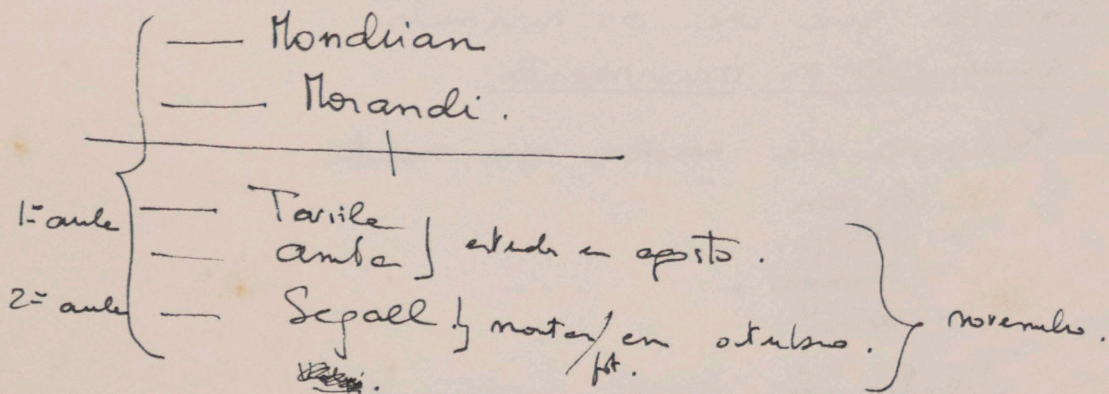 — Mondrian
— Morandi.
1ª aula — Tarsila
— Anita } estudo em agosto.
2ª aula — Segall } montar / em outubro. } novembro.